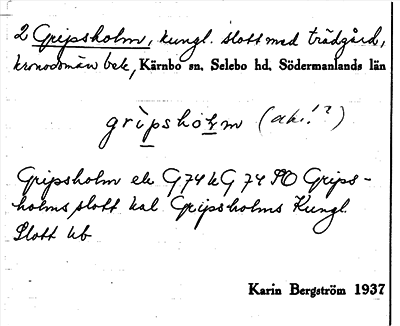 2 Gripsholm, kungl. slott med trädgård,
kronodomän bek, Kärnbo sn, Selebo hd, Södermanlands län
grìpshòlm (ak.!?)
Gripsholm ek G74 kG 74 PO Grips-
holms slott kal Gripsholms Kungl.
Slott kb
Karin Bergström 1937